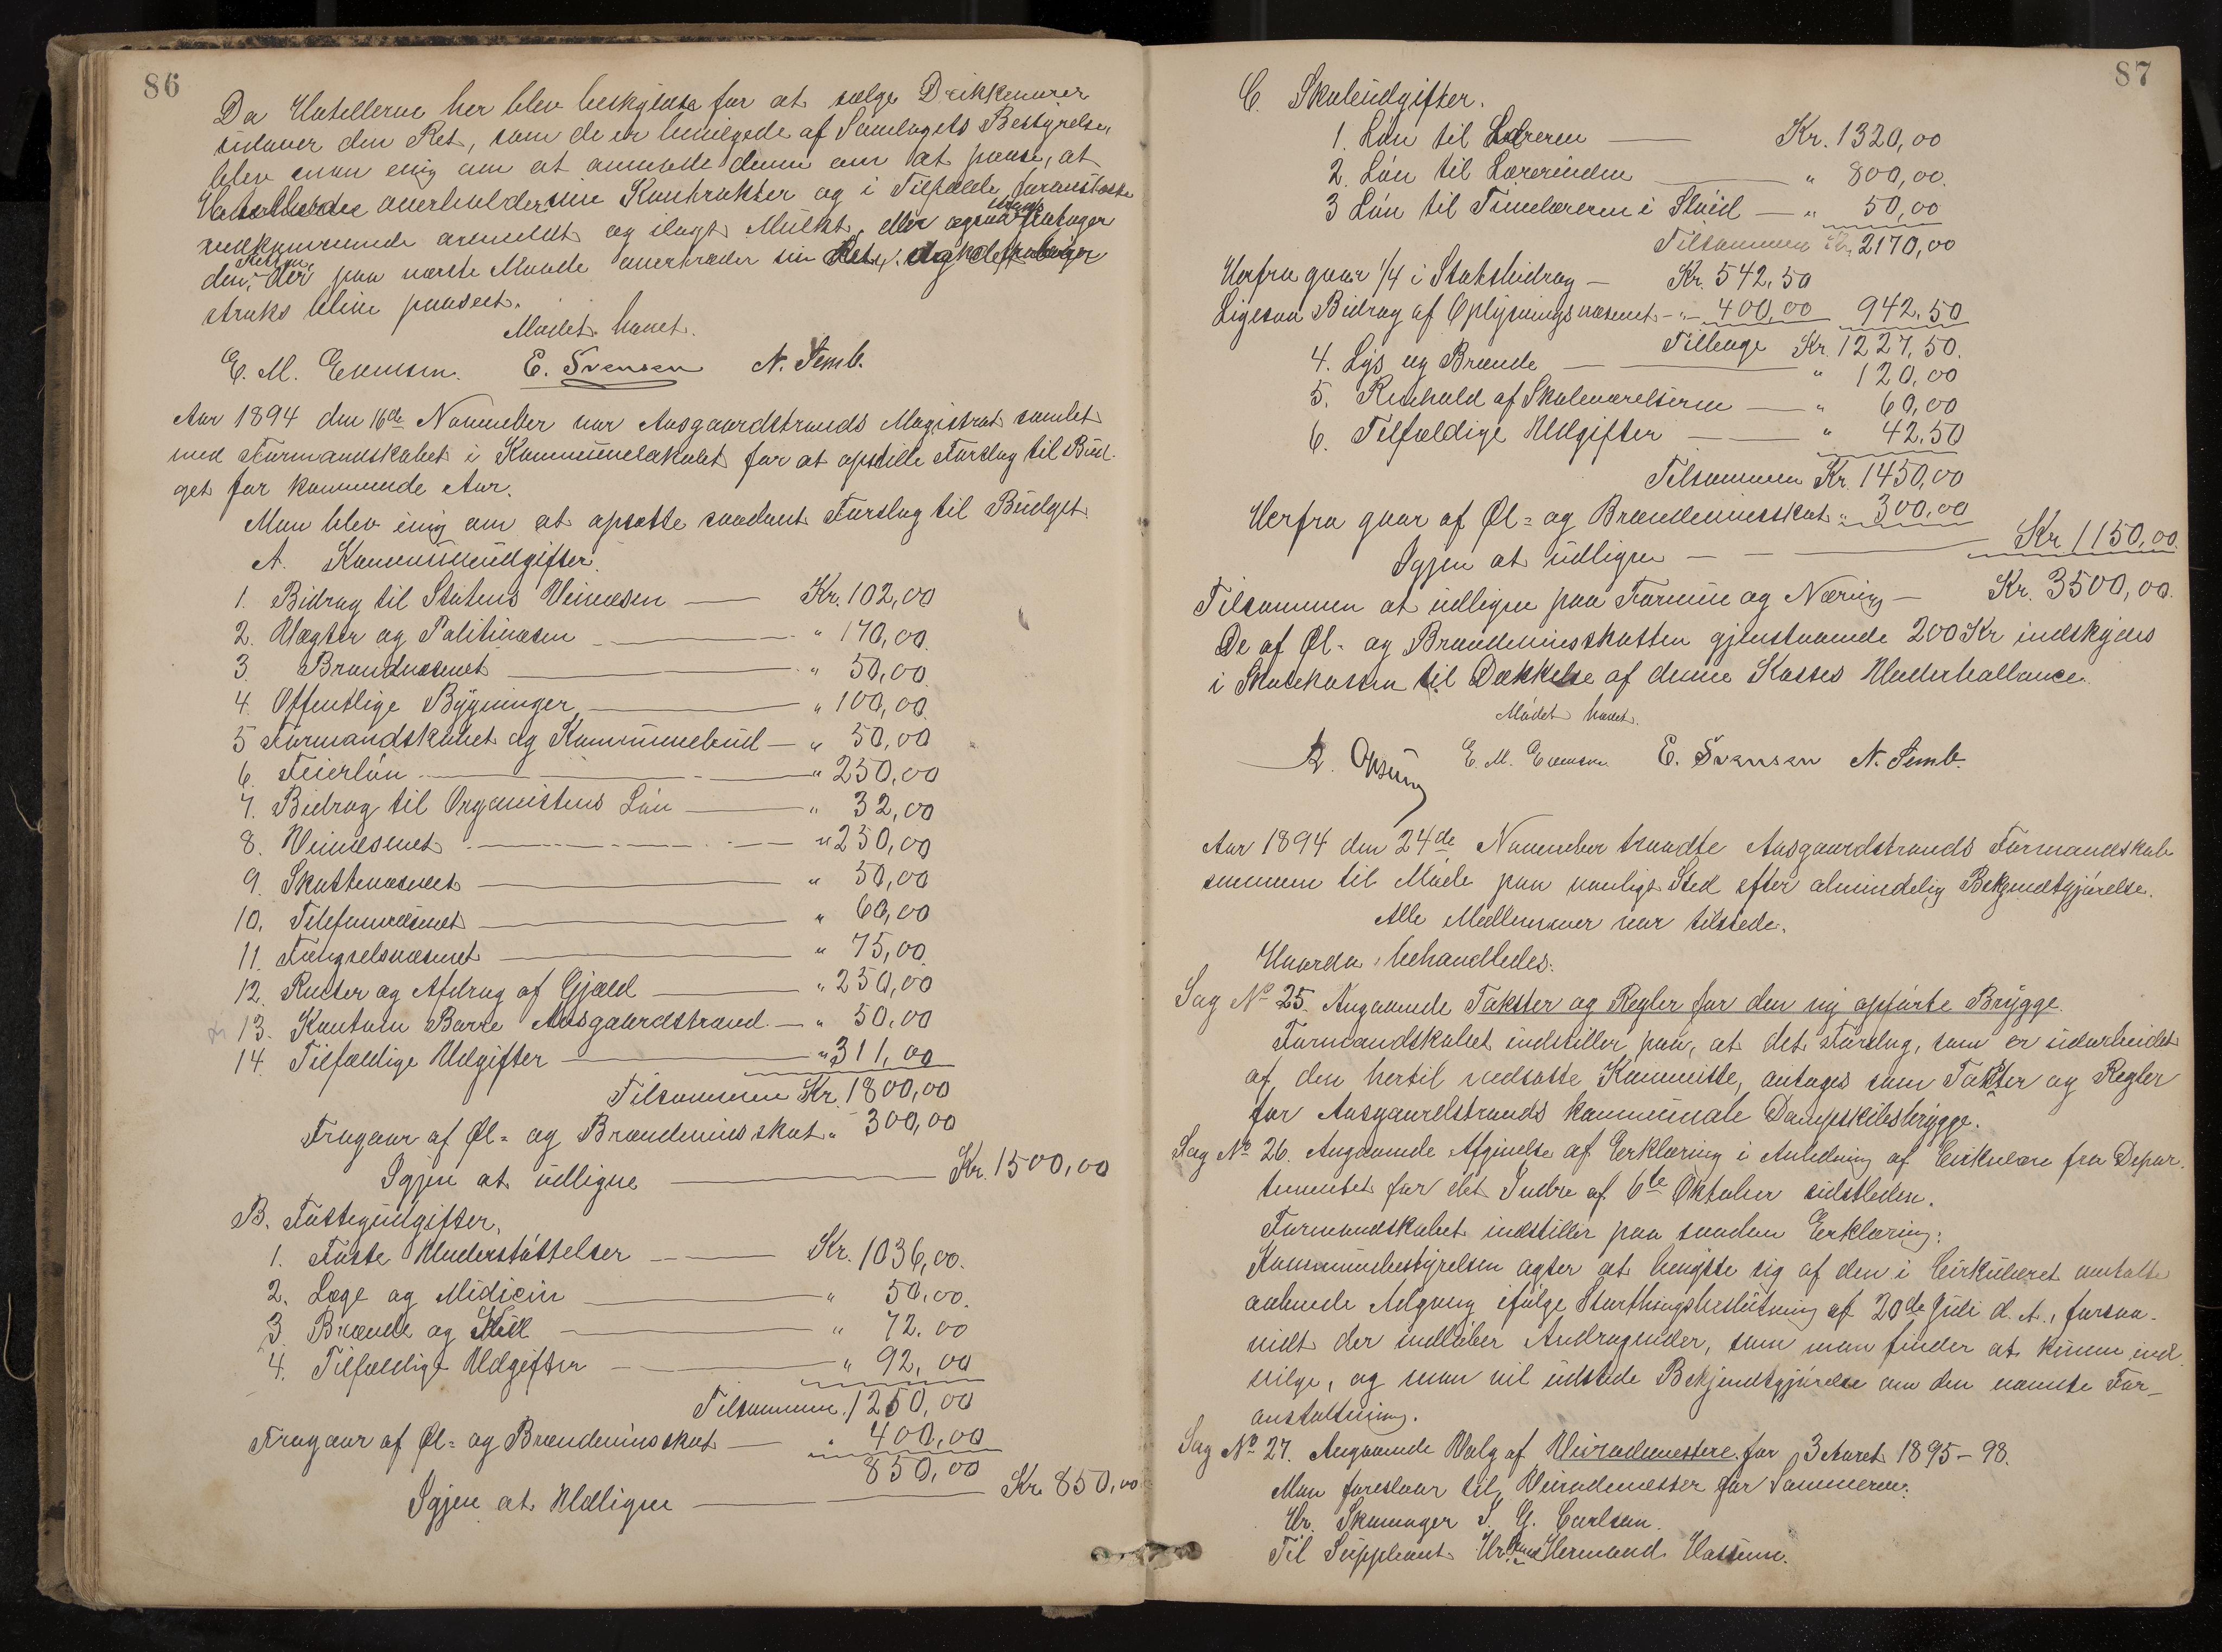 86
Da Hotellerne her blev beskyldte for at sælge Drikkevarer
udover den Ret, som de er bevilgede af Samlagets Bestyrelse,
blev man enig om at anmode denne om at passe, at
overholder sine Kontrakter og i Tilfælde
vedkommende anmeldt og ilagt Mulkt, eller ogsaa fratager
den, der paa næste Maade overtræder sin Ret,
straks blive paaseet.
Mødet hævet.
E. M. Evensen. E. Svensen N. Semb.
Aar 1894 den 16de November var Aasgaardstrands Magistrat samlet
med Formandskabet i Kommunelokalet for at opstille Forslag til Bud-
get for kommende Aar.
Man blev enig om at opsætte saadant Forslag til Budget.
A. Kommuneudgifter.
1. Bidrag til Statens Veivæsen — Kr. 102,00
2. Vægter og Politivæsen — " 170,00
3. Brandvæsenet — " 50,00
4. Offentlige Bygninger — " 100,00
5 Formandskabet og Kommunebud — " 50,00
6. Feierløn — " 250,00
7. Bidrag til Organistens Løn — " 32,00
8. Veivæsenet — " 250,00
9. Skattevæsenet — " 50,00
10. Telefonvæsenet — " 60,00
11. Fængselsvæsenet — " 75,00
12. Renter og Afdrag af Gjæld — " 250,00
13. Kontoen Borre Aasgaardstrand — " 50,00
14. Tilfældige Udgifter — " 311,00
Tilsammen Kr. 1800,00
Fragaar af Øl- og Brændevinsskat " 300,00
Igjen at udligne — Kr. 1500,00
B. Fattigudgifter.
1. Faste Understøttelser — Kr. 1036,00.
2. Læge og Midicin — " 50,00.
3. Brænde og — " 72,00
4. Tilfældige Udgifter — " 92,00
Tilsammen 1250,00
Fragaar af Øl- og Brændevinsskat — " 400,00
850,00
Igjen at Udligne — Kr. 850,00
87
C. Skoleudgifter.
1. Løn til Læreren — Kr. 1320,00
2. Løn til Lærerinden — " 800,00.
3 Løn til Timelæreren i Sløid — " 50,00
Tilsammen Kr. 2170,00
Herfra gaar 1/4 i Statsbidrag — Kr. 542,50
Ligesaa Bidrag af Oplysningsvæsenet — " 400,00 942,50
Tilbage Kr. 1227,50.
4. Lys og Brænde — " 120,00
5. Renhold af Skoleværelserne — " 60,00
6. Tilfældige Udgifter — " 42,50
Tilsammen Kr. 1450,00
Herfra gaar af Øl- og Brændevinsskat " 300,00
Igjen at udligne — Kr 1150,00.
Tilsammen at udligne paa Formue og Næring — Kr. 3500,00.
De af Øl- og Brændevinsskatten gjenstaaende 200 Kr indskydes
i Skolekassen til Dækkelse af denne Kasses Underballance.
Mødet hævet.
E. M. Evensen E. Svensen N. Semb.
Aar 1894 den 24de November traadte Aasgaardstrands Formandskab
sammen til Møde paa vanlige Sted efter almindelig Bekjendtgjørelse.
Alle Medlemmer var tilstede.
Hvorda behandledes:
Sag No 25. Angaaende Takster og Regler for den ny opførte Brygge.
Formandskabet indstiller paa, at det Forslag, som er udarbeidet
af den hertil nedsatte Kommitte, antages som Takster og Regler
for Aasgaardstrands kommunale Dampskibsbrygge.
Sag No 26. Angaaende Afgivelse af Erklæring i Anledning af Cirkulære fra Depar-
tementet for det Indre af 6te Oktober sidstleden.
Formandskabet indstiller paa saadan Erklæring:
Kommunebestyrelsen agter at benytte sig af den i Cirkulæret omtalte
aabnede Adgang ifølge Storthingsbeslutning af 20de Juli d. A., forsaa-
vidt der indløber Andragender, som man finder at kunne ind-
vilge, og man vil udstede Bekjendtgjørelse om den nævnte For-
anstaltning.
Sag No 27. Angaaende Valg af Veirodemestere for 3 Aaret 1895-98.
Man foreslaar til Veirodemester for Sommeren:
Hr. Skomager S. G. Carlsen.
Til Suppleant Hr. Hermand Hassum.